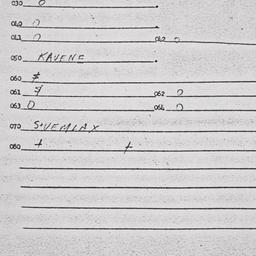 030 0
040 0
041 0 042 0
050 KAVENE
060 $
061 7 062 0
063 0 064 0
070
080 + +